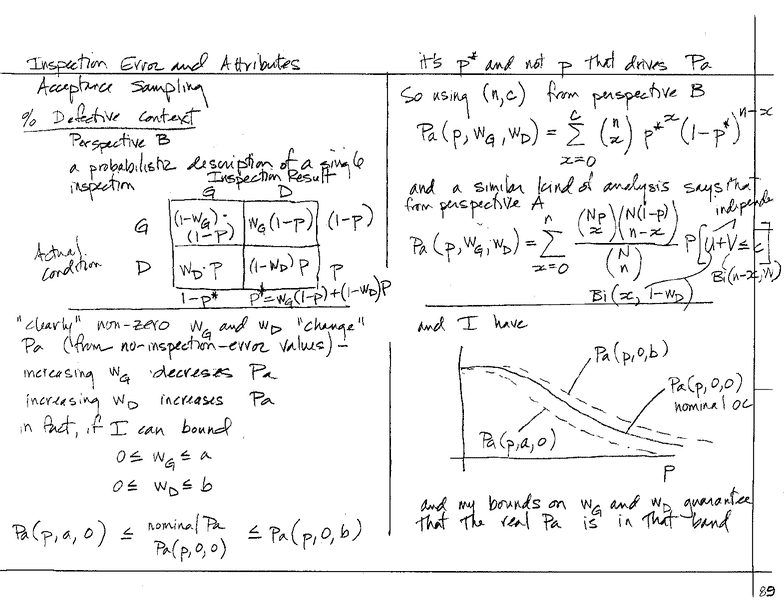 Inspection Error and Attributes
Acceptance Sampling
% Defective context
Perspective B
a probabilistic description of a single
inspection
Inspection Result
G D
G (1-w_G)·(1-p) w_G(1-p) (1-p)
Actual
condition
D w_D·p (1-w_D)p p
1-p* p*=w_G(1-p)+(1-w_D)p
"clearly" non-zero w_G and w_D "change"
Pa (from no-inspection-error values) –
increasing w_G decreses Pa
increasing w_D increases Pa
in fact, if I can bound
0 ≤ w_G ≤ a
0 ≤ w_D ≤ b
Pa(p,a,0) ≤ nominal Pa Pa(p,0,0) ≤ Pa(p,0,b)
it's p* and not p that drives Pa
So using (n,c) from perspective B
Pa(p,w_G,w_D) = Σ_{x=0}^{c} (n x) p*^x (1-p*)^{n-x}
and a similar kind of analysis says that
from perspective A
independe
Pa(p,w_G,w_D) = Σ_{x=0}^{n} (Np x)(N(1-p) n-x) / (N n) P[U+V ≤ c]
Bi(n-x,W)
Bi(x, 1-w_D)
and I have
Pa(p,0,b)
Pa(p,0,0)
nominal OC
Pa(p,a,0)
p
and my bounds on w_G and w_D guarantee
that the real Pa is in that band
89